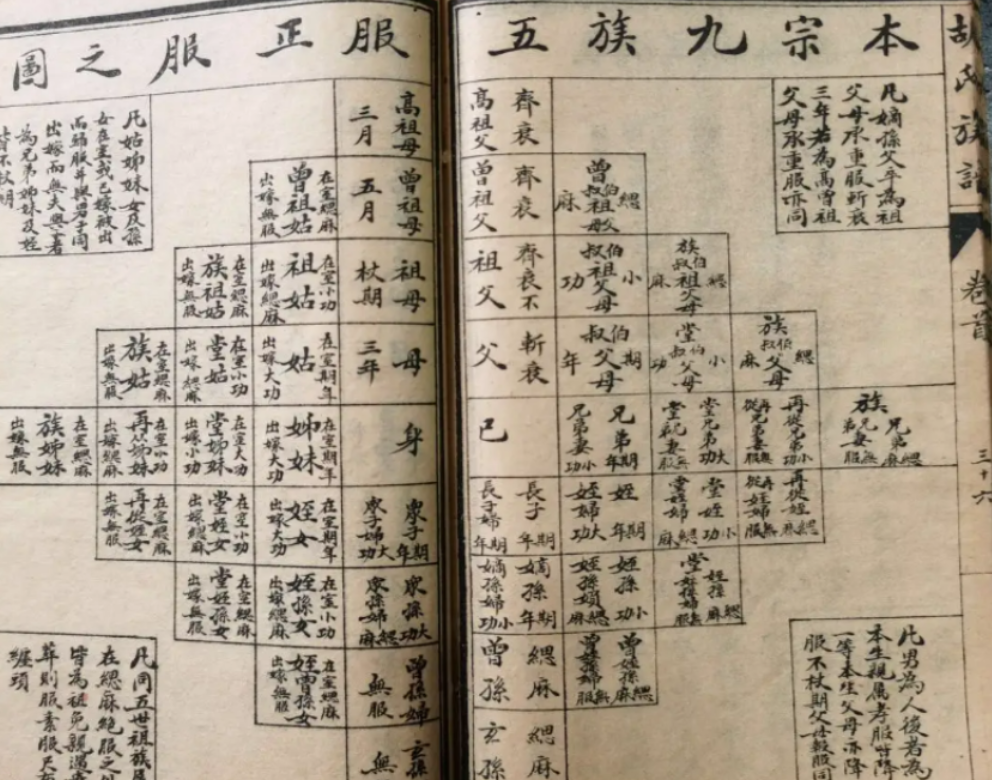 本宗九族五服正服之圖
胡氏族譜
卷首
三十六
凡嫡孫父卒為祖
父母承重服斬衰
三年若為高曾祖
父母承重服亦同
高祖父
齊衰
高祖母
三月
曾祖父
齊衰
曾祖母
五月
曾叔伯祖父母
緦麻
曾祖姑
在室緦麻
出嫁無服
祖父
齊衰不
祖母
杖期
叔伯祖父母
小功
族叔伯祖父母
緦麻
祖姑
在室小功
出嫁緦麻
族祖姑
在室緦麻
出嫁無服
父
斬衰
母
三年
叔伯父母
期年
堂叔伯父母
小功
族叔伯父母
緦麻
姑
在室期年
出嫁大功
堂姑
在室小功
出嫁緦麻
族姑
在室緦麻
出嫁無服
己
身
兄弟期年
兄弟妻小功
堂兄弟大功
再從兄弟小功
族兄弟緦麻
姊妹
在室期年
出嫁大功
堂姊妹
在室大功
出嫁小功
再從姊妹
在室小功
出嫁緦麻
族姊妹
在室緦麻
出嫁無服
長子期年
長子婦期年
眾子期年
眾子婦大功
姪期年
姪婦大功
堂姪小功
堂姪婦緦麻
再從姪緦麻
再從姪婦無服
姪女
在室期年
出嫁大功
堂姪女
在室小功
出嫁緦麻
再從姪女
在室緦麻
出嫁無服
嫡孫期年
嫡孫婦小功
眾孫大功
眾孫婦緦麻
姪孫小功
姪孫婦緦麻
堂姪孫緦麻
姪孫女
在室小功
出嫁緦麻
堂姪孫女
在室緦麻
出嫁無服
曾孫
緦麻
曾孫婦
無服
曾姪孫緦麻
曾姪孫婦無服
姪曾孫女
在室緦麻
出嫁無服
玄孫
緦麻
玄孫
無
凡姑姊妹女及孫
女在室或已嫁被出
而歸服年與男子同
出嫁而無夫與子者
為兄弟姊妹及姪
皆不杖期
凡男為人後者為
本生親屬孝服皆降
一等本生父母亦降
服不杖期父母報服同
凡同五世祖族屬
在緦麻絕服之外
皆為袒免親遇喪
葬則服素服尺布
纏頭